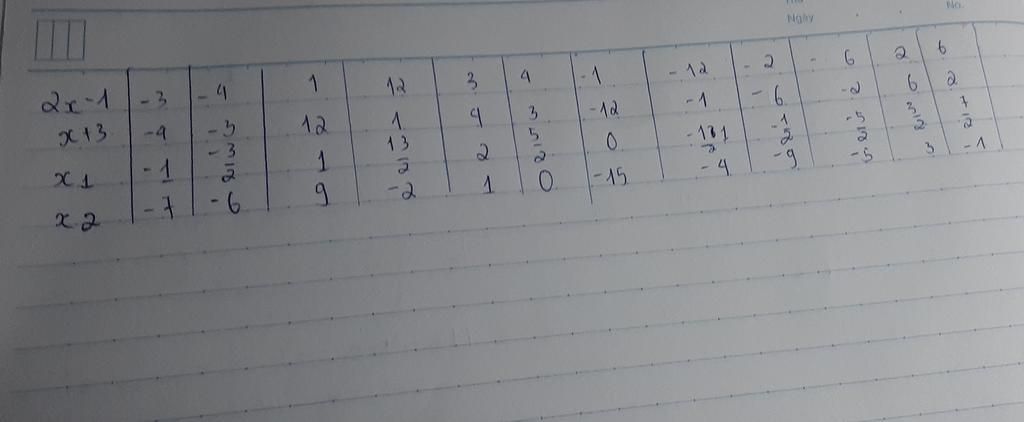 Ngày
No.
2x-1 -3 -4 1 12 3 4 -1 -12 -2 -6 2 6
x+3 -4 -3 12 1 4 3 -12 -1 -6 -2 6 2
x1 -1 -3/2 1 13/2 2 5/2 0 -1/2 -5/2 3/2 7/2
x2 -7 -6 9 -2 1 0 -15 -4 -9 -5 3 -1